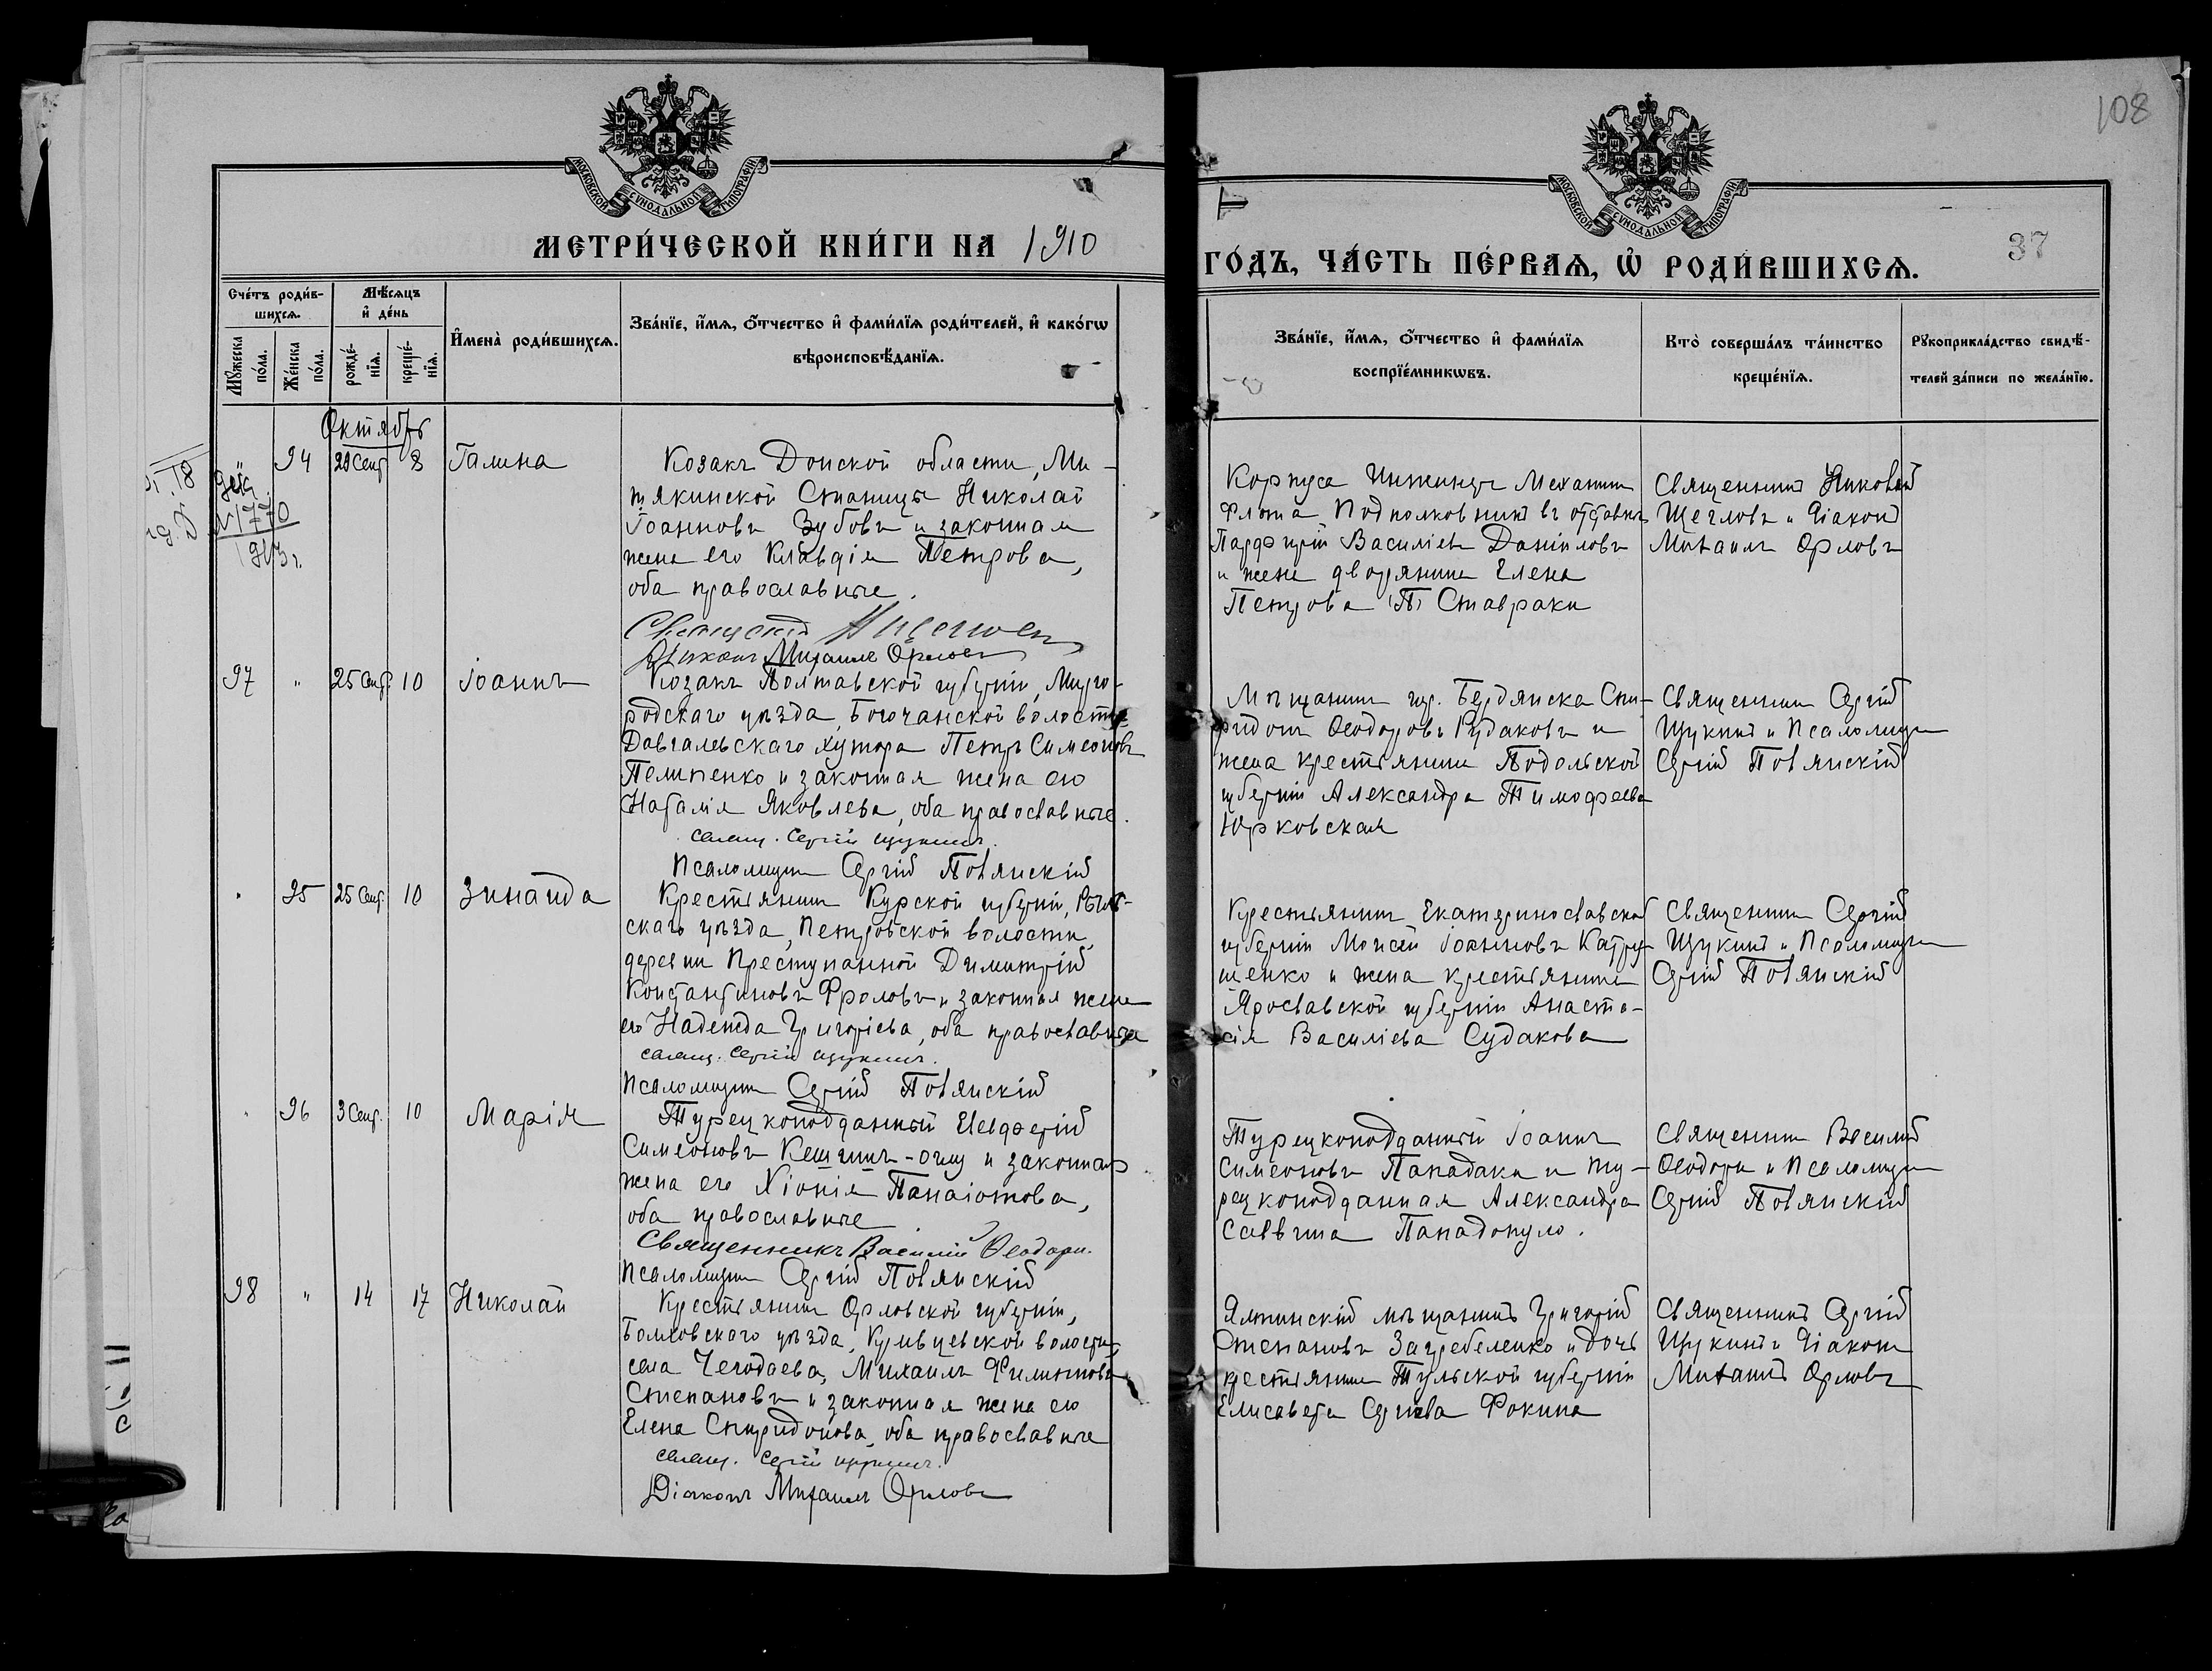 108
МОСКОВСКОЙ СѴНОДАЛЬНОЙ ТИПОГРАФІИ
МОСКОВСКОЙ СѴНОДАЛЬНОЙ ТИПОГРАФІИ
МЕТРИ́ЧЕСКОЙ КНИ́ГИ НА 1910
ГО́ДЪ, ЧА́СТЬ ПЕ́РВАѦ, Ѡ҆ РОДИ́ВШИХСѦ.
37
Сче́тъ роди́в-
шихсѧ.
Мꙋ́жеска по́ла.
Же́нска по́ла.
Мѣ́сѧцъ
и҆ де́нь
рожде́-нїѧ.
креще́-нїѧ.
И҆мена̀ роди́вшихсѧ.
Зва́нїе, и҆́мѧ, ѻ҆́тчество и҆ фами́лїѧ роди́телей, и҆ како́гѡ
вѣроисповѣ́данїѧ.
Зва́нїе, и҆́мѧ, ѻ҆́тчество и҆ фами́лїѧ
воспрїе́мникѡвъ.
Кто̀ соверша́лъ та́инство
креще́нїѧ.
Рꙋкоприкла́дство свидѣ́-
телей за́писи по жела́нїю.
Октябрь
94 29 Сент. 8 Галина
№ 1770
1913 г.
Козакъ Донской области, Ми-
тякинской Станицы Николай
Іоанновъ Зубовъ и законная
жена его Клавдія Петрова,
оба православные.
Священникъ Н. Щегловъ
Діаконъ Михаилъ Орловъ
Корпуса Инженеръ Механик
Флота Подполковникъ въ отставкѣ
Парфирій Василіевъ Даниловъ
и жена дворянина Елена
Петрова (П) Ставраки
Священникъ Николай
Щегловъ и Діаконъ
Михаилъ Орловъ
97 " 25 Сент. 10 Іоаннъ
Козакъ Полтавской губерніи, Мирго-
родскаго уѣзда, Богочанской волости
Довгалевскаго хутора Петръ Симеоновъ
Пелипенко и законная жена его
Наталія Яковлева, оба православные.
Свящ. Сергій Щукинъ.
Псаломщикъ Сергій Повянскій
Мѣщанинъ гор. Бердянска Спи-
ридонъ Ѳеодоровъ Рудаковъ и
жена крестьянина Подольской
губерніи Александра Тимофеева
Юрковская
Священникъ Сергій
Щукинъ и Псаломщикъ
Сергій Повянскій
" 95 25 Сент. 10 Зинаида
Крестьянинъ Курской губерніи, Рыль-
скаго уѣзда, Петровской волости,
деревни Преступанной Димитрій
Константиновъ Фроловъ и законная жена
его Надежда Григоріева, оба православные
Свящ. Сергій Щукинъ.
Псаломщикъ Сергій Повянскій
Крестьянинъ Екатеринославской
губерніи Моисей Іоанновъ Катру-
щенко и жена крестьянина
Ярославской губерніи Анаста-
сія Василіева Судакова
Священникъ Сергій
Щукинъ и Псаломщикъ
Сергій Повянскій
" 96 3 Сент. 10 Марія
Турецкоподданный Елевферій
Симеоновъ Кешишъ-оглу и законная
жена его Хіонія Панаіотова,
оба православные
Священникъ Василій Ѳеодори.
Псаломщикъ Сергій Повянскій
Турецкоподданный Іоаннъ
Симеоновъ Пападаки и ту-
рецкоподданная Александра
Саввична Пападопуло.
Священникъ Василій
Ѳеодори и Псаломщикъ
Сергій Повянскій
98 " 14 17 Николай
Крестьянинъ Орловской губерніи,
Болховского уѣзда, Кривцевской волости
села Чегодаева, Михаилъ Филиповъ
Степановъ и законная жена его
Елена Спиридонова, оба православные
Свящ. Сергій Щукинъ.
Діаконъ Михаилъ Орловъ
Ялтинскій мѣщанинъ Григорій
Степановъ Загребеленко и дочь
крестьянина Тульской губерніи
Елисавета Сергіева Фокина
Священникъ Сергій
Щукинъ и Діаконъ
Михаилъ Орловъ